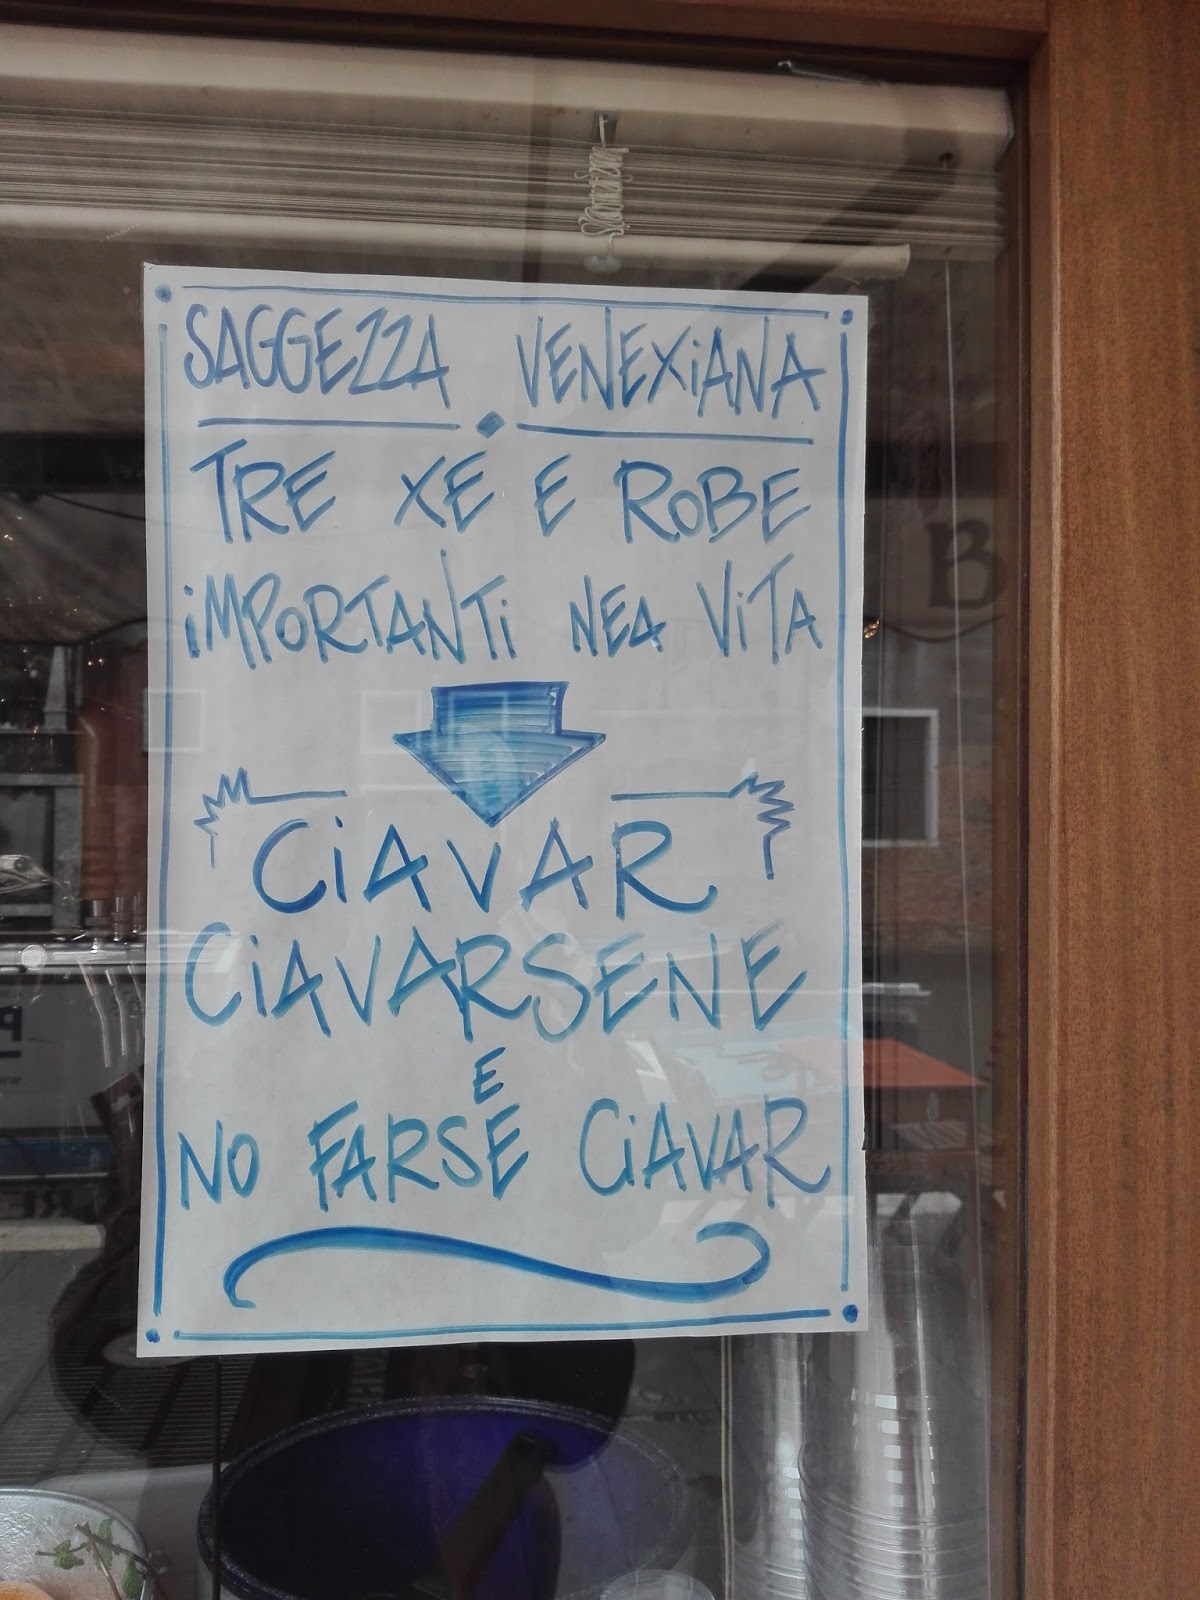 SAGGEZZA VENEXiANA
TRE XÈ E ROBE
iMPORTANTi NEA ViTA
CiAVAR
CiAVARSENE
E
NO FARSE CiAVAR
B